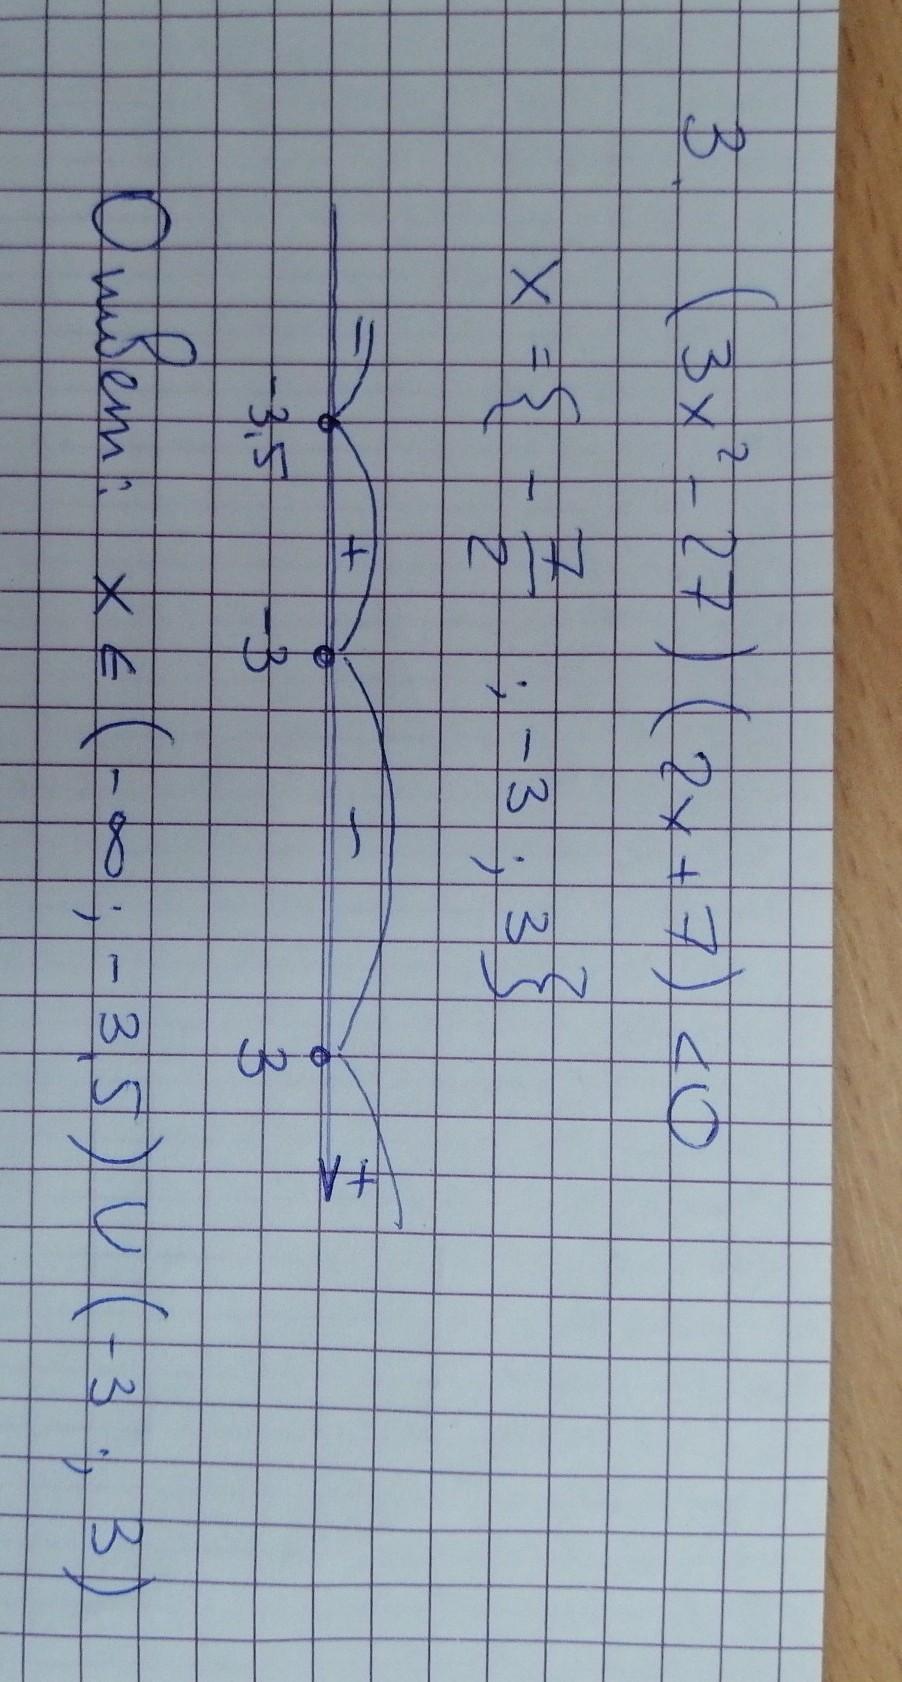 3. (3x² - 27)(2x + 7) < 0
x = { - 7/2 ; -3 ; 3 }
= + - +
-3,5 -3 3
Ответ: x ∈ (-∞; -3,5) ∪ (-3 ; 3)